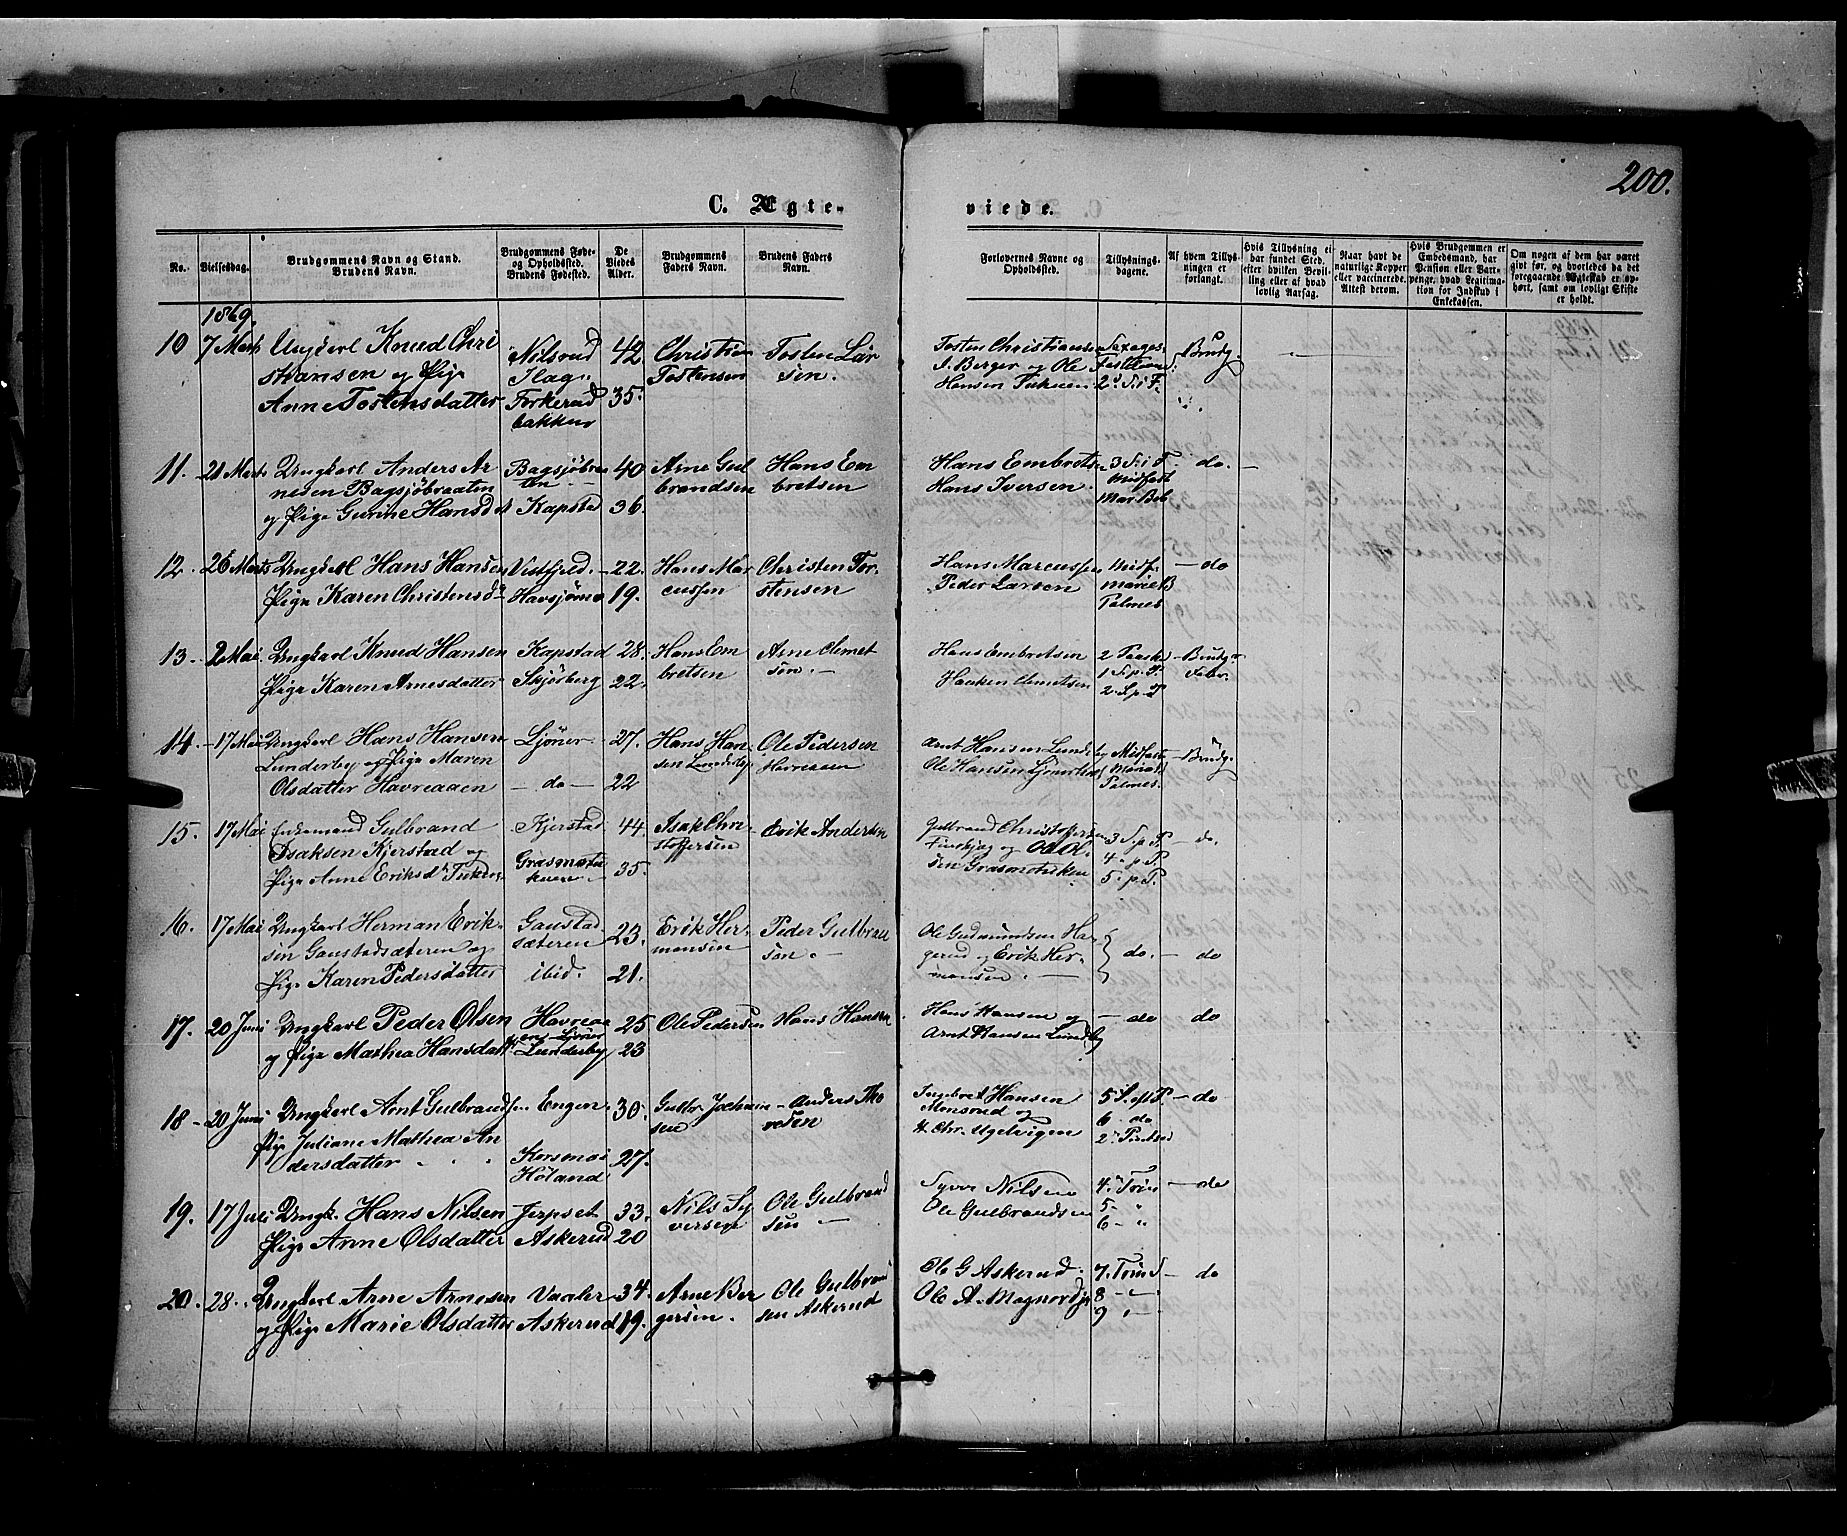 200.
C. Ægte-
viede.
No.
Vielsesdag.
Brudgommens Navn og Stand.
Brudens Navn.
Brudgommens Føde- og Opholdssted.
Brudens Fødested.
De Viedes Alder.
Brudgommens Faders Navn.
Brudens Faders Navn.
Forlovernes Navne og Opholdssted.
Tillysnings-dagene.
Af hvem Tillysningen er forlangt.
Hvis Tillysning ei har fundet Sted, efter hvilken Bevilling eller af hvad lovlig Aarsag.
Naar havt de naturlige Kopper eller vaccinerede. Attest derom.
Hvis Brudgommen er Embedsmand, har Pension eller Vartpenge, hvad Legitimation for Indskud i Enkekassen.
Om nogen af dem har været gift før, og hvorledes da det foregaaende Ægteskab er ophørt, samt om lovligt Skifte er holdt.
1869.
10 7 Marts Ungkarl Knud Chri
stiansen og Pige
Anne Tostensdatter
Nilsrud
Flag
Torkerud
bakken
42
35.
Christian
Tostensen
Tosten Lar
sen.
Tosten Christiansen
S. Berger og Ole
Hansen
2 S. i F.
Brudg.
11. 21 Marts Ungkarl Anders Ar
nesen Bagsjøbraaten
og Pige Gurine Hansdt
Bagsjøbraa
ten
Kapstad
40
36.
Arne Gul
brandsen
Hans Em
bretsen
Hans Embretsen
Hans Iversen
3 S. i F.
Midfast
Mar. Beb
do.
12. 26 Marts Ungkarl Hans Hansen
Pige Karen Christensd.
Vestfjeld
Havsjømo
22.
19.
Hans Mar
cussen
Christen Tor
stensen
Hans Marcussen
Peder Larsen
Midf.
Mariæ B
Palmes
do
13. 2 Mai Ungkarl Knud Hansen
Pige Karen Arnesdatter
Kapstad
Skjøsberg
28.
22.
Hans Em
bretsen
Arne Clemet
sen.
Hans Embretsen
Haaken Clemetsen
2 Paask
1 S. p. P.
2 S. p. P
Brudg.
14. 17 Mai Ungkarl Hans Hansen
Lunderby og Pige Maren
Olsdatter Havreaaen
Ljöner
do
27.
22
Hans Han
sen Lunderby
Ole Pedersen
Havreaaen
Arnt Hansen Lunderby
Ole Hansen
Midfaste
Mariæ B
Palmes.
Brudg.
15. 17 Mai Enkemand Gulbrand
Isaksen Kjerstad og
Pige Anne Eriksd.
Kjerstad
44.
35.
Isak Chri
stoffersen
Erik Andersen
Gulbrand Christoffersen
og Ole Ol
sen
3 S. p. P.
4 p. P.
5 p. P.
do.
16. 17 Mai Ungkarl Herman Erik
sen Gaustadsæteren og
Pige Karen Pedersdatter
Gaustad
sæteren
ibid.
23.
21.
Erik Her
mansen
Peder Gulbran
sen.
Ole Gudmundsen Ha
gerud og Erik Her
mansen.
do.
do
17. 20 Juni Ungkarl Peder Olsen
og Pige Mathea Hansdatt
Havreaa
en Ljöner
Lunderby
25
23
Ole Pedersen
Hans Hansen
Hans Hansen og
Arnt Hansen Lundby
do
do
18 20 Juni Ungkarl Arnt Gulbrandsen
Pige Juliane Mathea An
dersdatter
Engen
Høland
30.
27.
Gulbr. Jocham
sen
Anders Tho
resen
Ingebret Hansen
Monsrud og
H. Chr. Ugelvigen
5 S. eft P.
6 do
2 Pintsed
do
19. 17 Juli Ungk. Hans Nilsen
Pige Anne Olsdatter
Jerpset
Askerud
33.
20
Nils Sy
versen
Ole Gulbrand
sen
Syver Nilsen
Ole Gulbrandsen
4 Trin
5 "
6 "
do
20. 28. Ungkarl Arne Arnesen
og Pige Marie Olsdatter
Vaaler
Askerud
34.
19.
Arne Ber
gersen.
Ole Gulbrand
sen Askerud
Ole G Askerud.
Ole A. Magnor
7 Trin
8 "
9 "
do